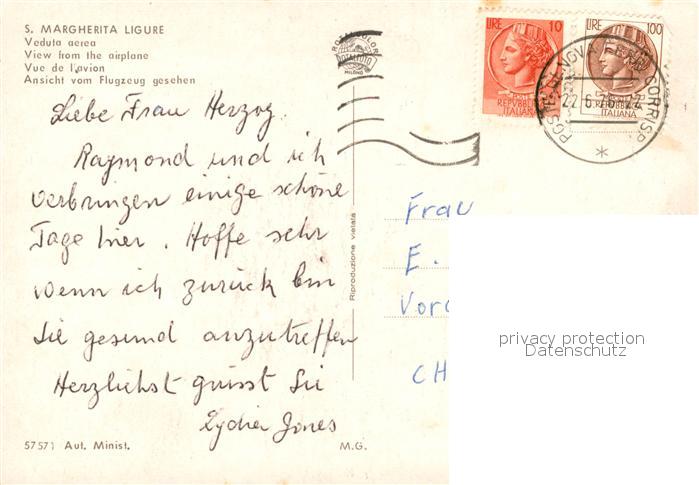 S. MARGHERITA LIGURE
Veduta aerea
View from the airplane
Vue de l'avion
Ansicht vom Flugzeug gesehen
Liebe Frau Herzog.
Raymond und ich
verbringen einige schöne
Tage hier. Hoffe sehr
wenn ich zurück bin
Sie gesund anzutreffen
Herzlichst grüsst Sie
Lydia Jones
57571 Aut. Minist.
M.G.
Riproduzione vietata
ROTALCOLOR
ROTALFOTO
MILANO
LIRE 10
POSTE
REPVBBLICA
ITALIANA
LIRE 100
POSTE
REPVBBLICA
ITALIANA
GENOVA
CORRISP
22
Frau
E.
CH
privacy protection
Datenschutz